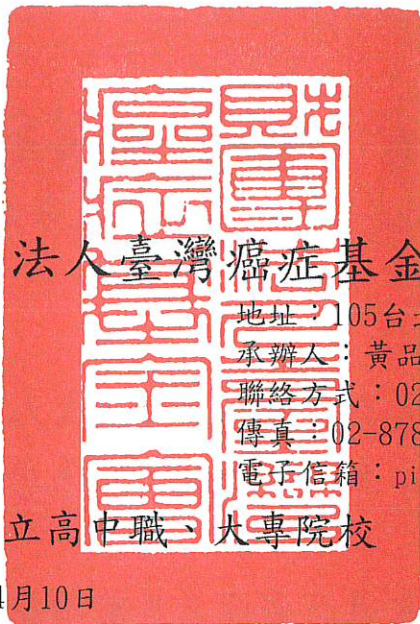 財團法人臺灣
癌症基金會
法人臺灣癌症基金
地址：105台
承辦人：黃品
聯絡方式：02
傳真：02-878
電子信箱：pi
立高中職、大專院校
月10日